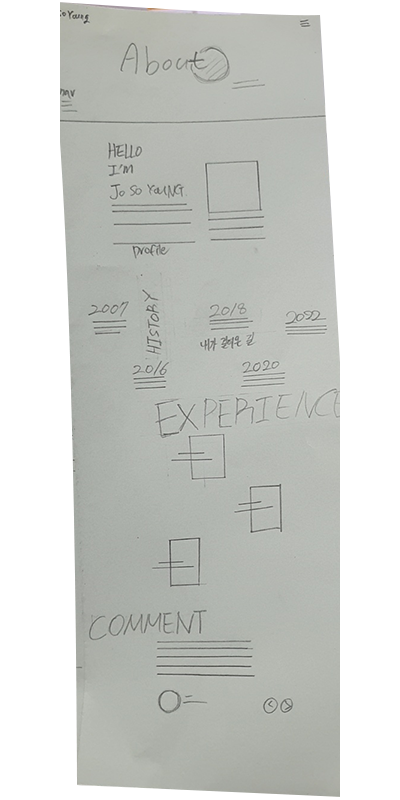 So Young
About
HELLO
I'M
JO SO YOUNG.
Profile
HISTORY
2007
2018
2022
내가 걸어온 길
2016
2020
EXPERIENCE
COMMENT